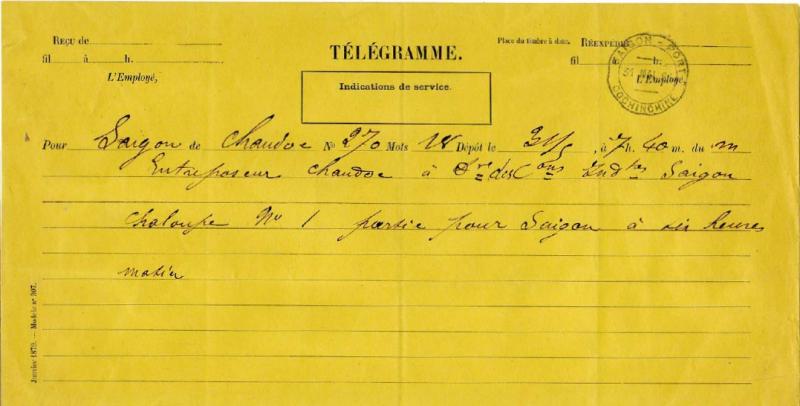 REÇU de
fil à h.
L'Employé,
TÉLÉGRAMME.
Indications de service.
Place du timbre à date.
RÉEXPÉDIÉ
fil h.
L'Employé,
SAIGON-PORT
31 MAI
COCHINCHINE
Pour Saigon de Chaudoc N° 270 Mots 18 Dépôt le 31/5 à 7 h. 40 m. du m
Entreposeur Chaudoc à Dre des Cons Indtes Saigon
Chaloupe No 1 partie pour Saigon à six heures
matin
Janvier 1879. — Modèle n° 307.